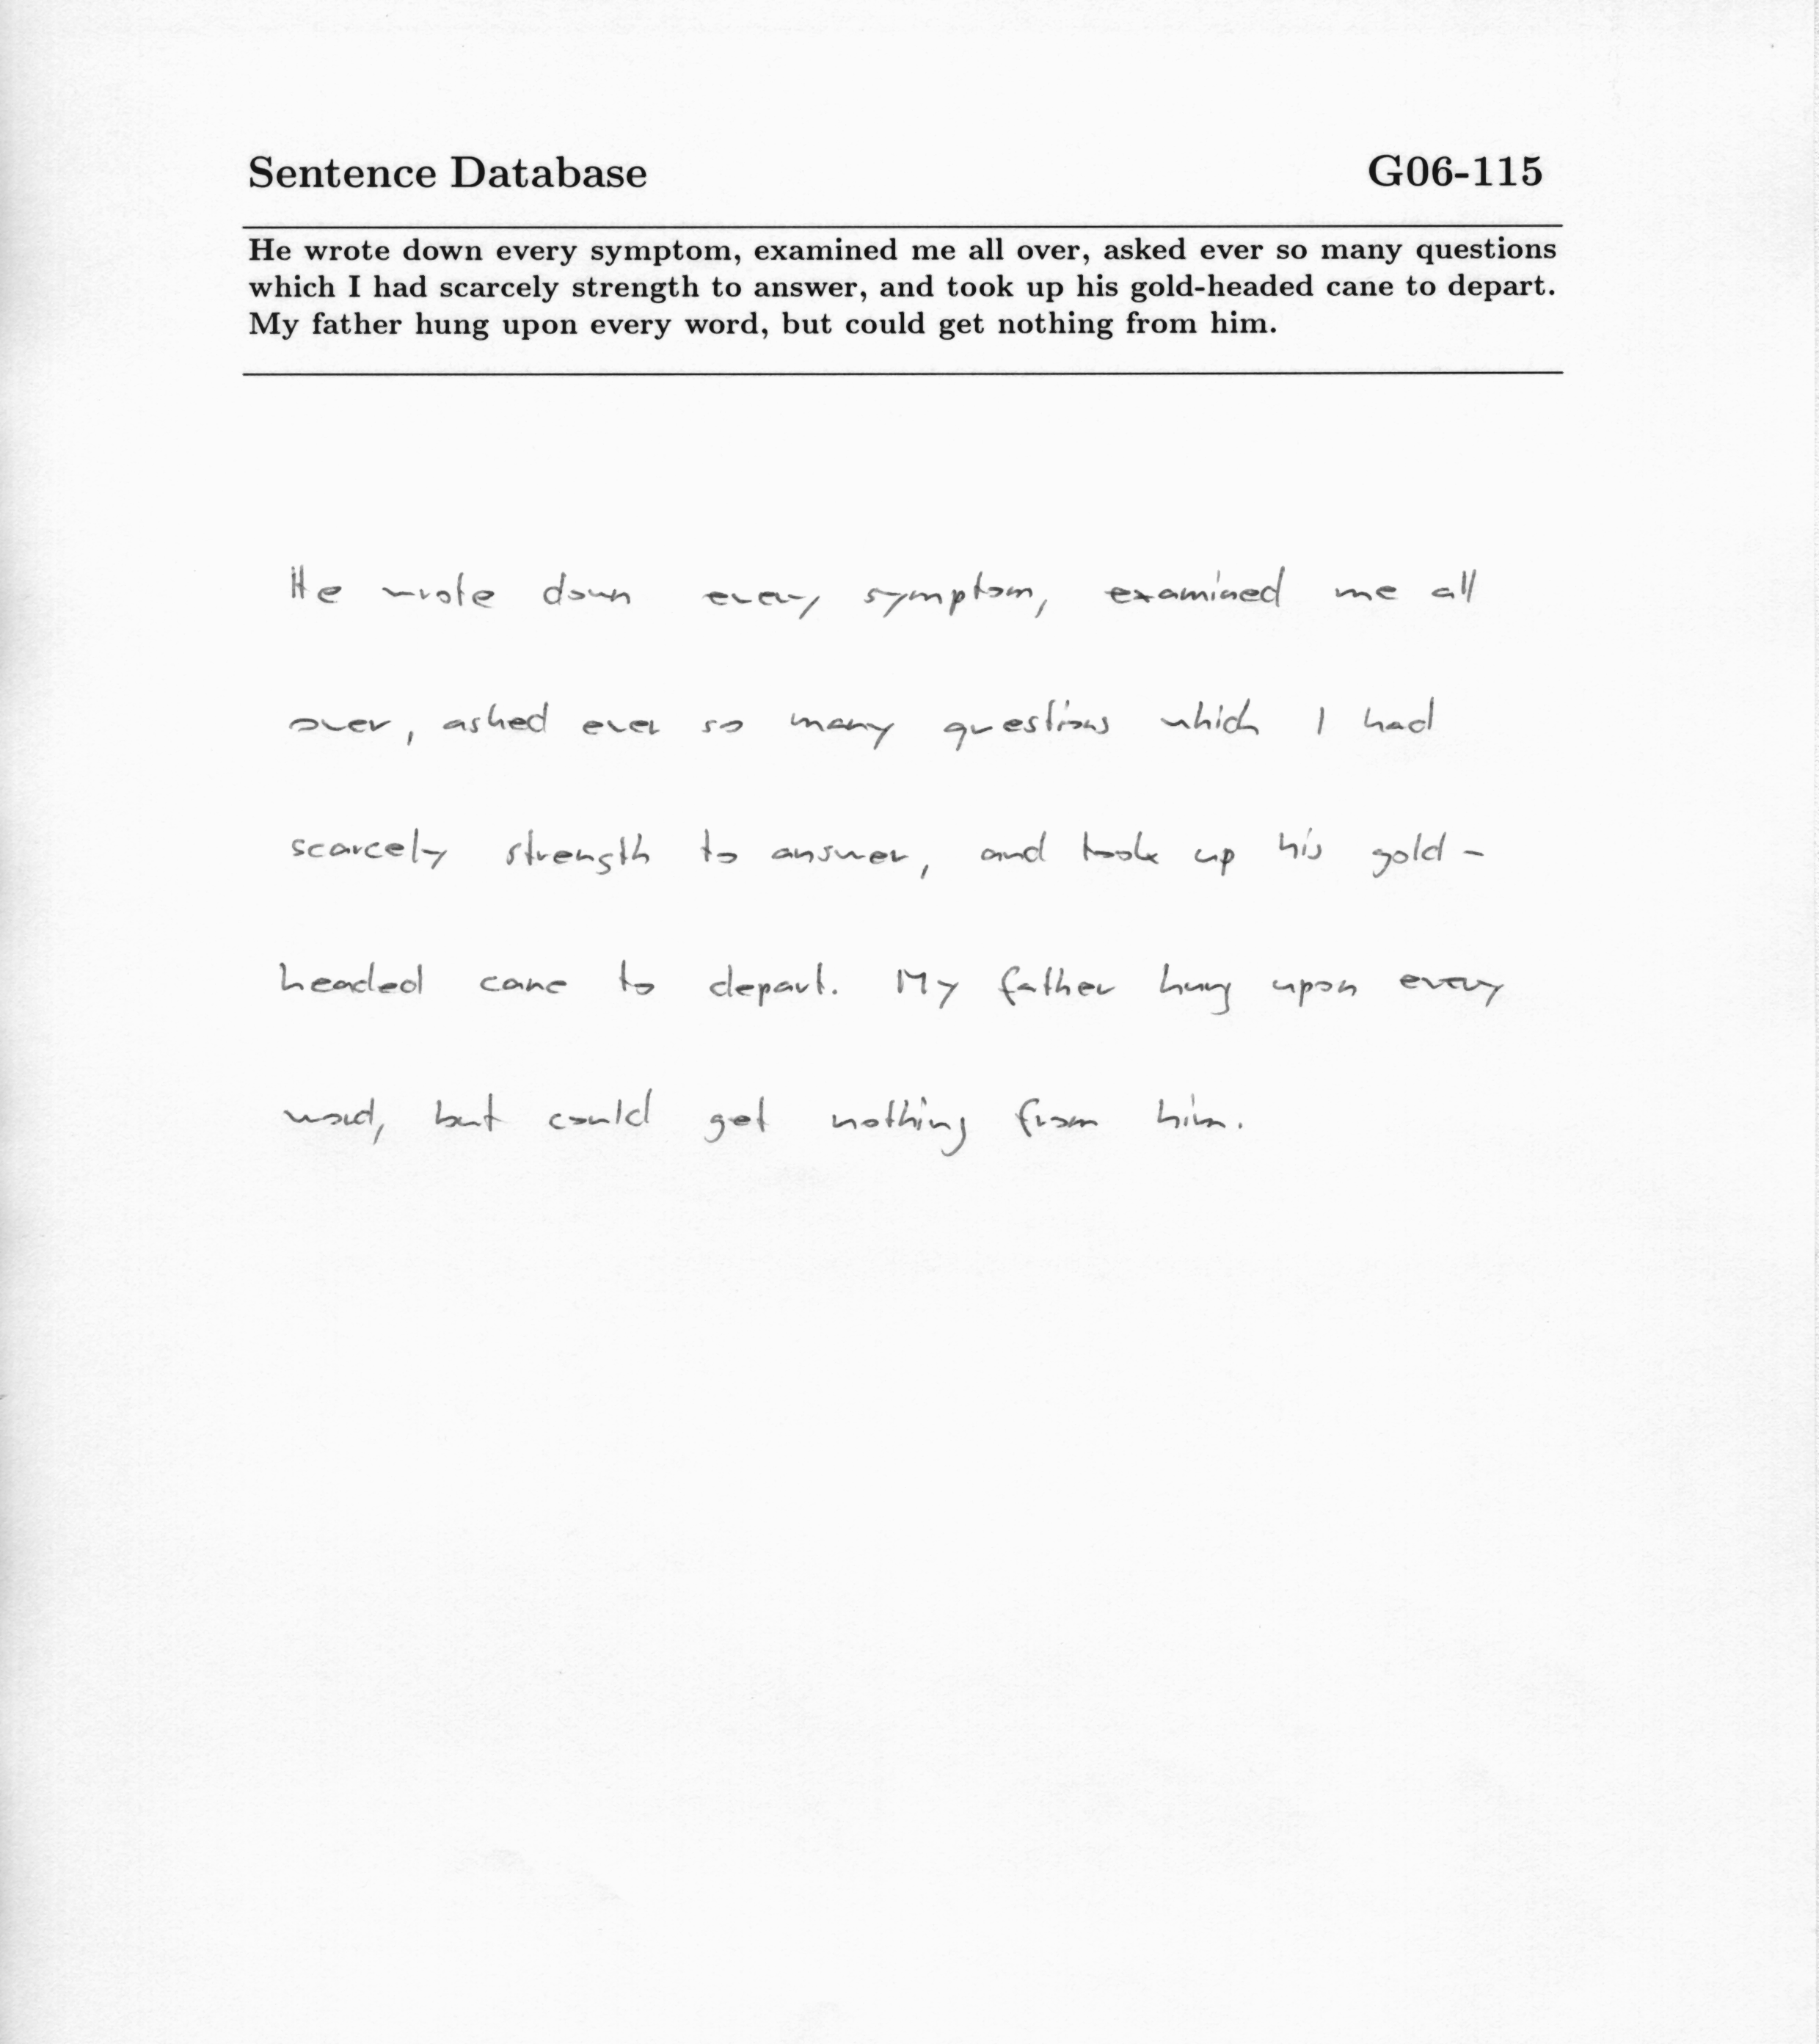 Sentence Database G06-115
He wrote down every symptom, examined me all over, asked ever so many questions
which I had scarcely strength to answer, and took up his gold-headed cane to depart.
My father hung upon every word, but could get nothing from him.
He wrote down every symptom, examined me all
over, asked ever so many questions which I had
scarcely strength to answer, and took up his gold-
headed cane to depart. My father hung upon every
word, but could get nothing from him.